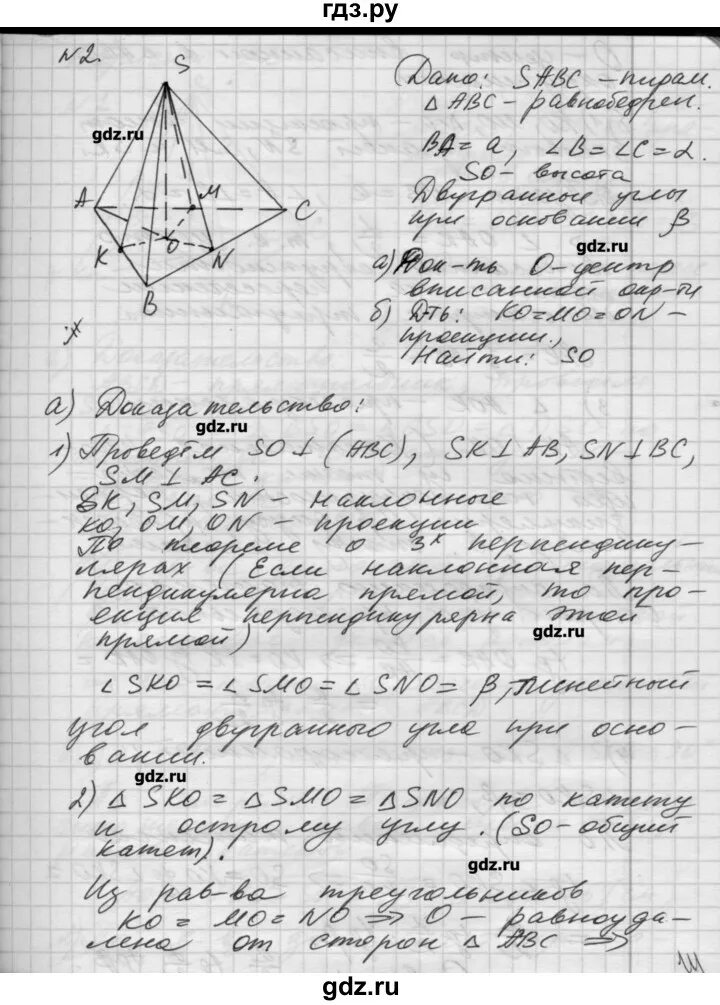 гдз.ру
№2.
S
A
M
C
O
K
N
B
gdz.ru
Дано: SABC – пирам.
Δ ABC – равнобедрен.
BA = a, ∠B = ∠C = α.
SO – высота
Двугранные углы
при основании β
gdz.ru
а) Док-ть O – центр
вписанной окр-ти
б) KO = MO = ON –
проекции.,
Найти: SO
gdz.ru
а) Доказательство:
gdz.ru
1) Проведём SO ⊥ (ABC), SK ⊥ AB, SN ⊥ BC,
SM ⊥ AC.
SK, SM, SN – наклонные
KO, OM, ON – проекции
По теореме о 3х перпендику-
лярах (Если наклонная пер-
пендикулярна прямой, то про-
екция перпендикулярна этой
прямой)
gdz.ru
∠ SKO = ∠ SMO = ∠ SNO = β, линейный
угол двугранного угла при осно-
вании.
gdz.ru
2) Δ SKO = Δ SMO = Δ SNO по катету
и острому углу. (SO – общий
катет).
gdz.ru
Из рав-ва треугольников
KO = MO = NO ⇒ O – равноуда-
лена от сторон Δ ABC ⇒
gdz.ru